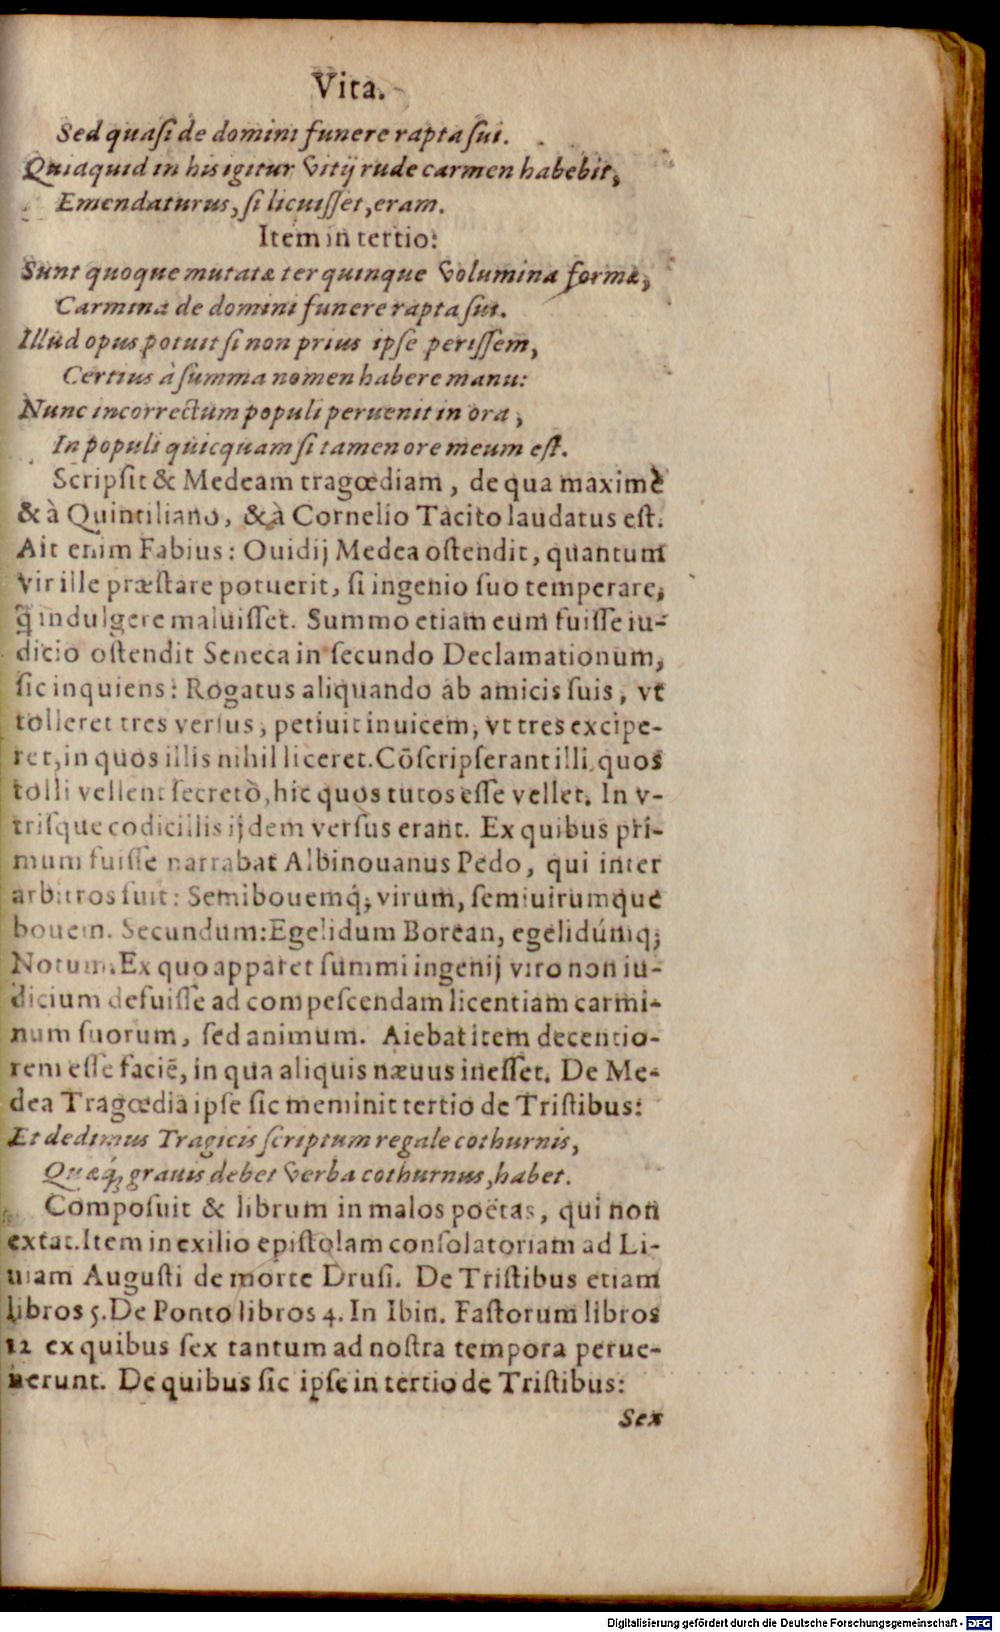 Vita.
Sed quaſi de domini funere rapta ſui.
Quidquid in his igitur vitij rude carmen habebit,
Emendaturus, ſi licuiſſet, eram.
Item in tertio:
Sunt quoque mutatæ ter quinque volumina formæ,
Carmina de domini funere rapta ſui.
Illud opus potuit ſi non prius ipſe periſſem,
Certius à ſumma nomen habere manu:
Nunc incorrectum populi peruenit in ora,
In populi quicquam ſi tamen ore meum eſt.
Scripſit & Medeam tragœdiam, de qua maximè
& à Quintiliano, & à Cornelio Tacito laudatus eſt.
Ait enim Fabius: Ouidij Medea oſtendit, quantum
vir ille præſtare potuerit, ſi ingenio ſuo temperare,
q̃ indulgere maluiſſet. Summo etiam eum fuiſſe iu-
dicio oſtendit Seneca in ſecundo Declamationum,
ſic inquiens: Rogatus aliquando ab amicis ſuis, vt
tolleret tres verſus, petiuit inuicem, vt tres excipe-
ret, in quos illis nihil liceret. Cōſcripſerant illi, quos
tolli vellent ſecretò, hic quos tutos eſſe vellet. In v-
triſque codicillis ijdem verſus erant. Ex quibus pri-
mum fuiſſe narrabat Albinouanus Pedo, qui inter
arbitros fuit: Semibouemq́; virum, ſemiuirumque
bouem. Secundum: Egelidum Borean, egelidúmq;
Notum. Ex quo apparet ſummi ingenij viro non iu-
dicium defuiſſe ad compeſcendam licentiam carmi-
num ſuorum, ſed animum. Aiebat item decentio-
rem eſſe faciē, in qua aliquis næuus ineſſet. De Me-
dea Tragœdia ipſe ſic meminit tertio de Triſtibus:
Et dedimus Tragicis ſcriptum regale cothurnis,
Quæq́; grauis debet verba cothurnus, habet.
Compoſuit & librum in malos poëtas, qui non
extat. Item in exilio epiſtolam conſolatoriam ad Li-
uiam Auguſti de morte Druſi. De Triſtibus etiam
libros 5. De Ponto libros 4. In Ibin. Faſtorum libros
12 ex quibus ſex tantum ad noſtra tempora perue-
uerunt. De quibus ſic ipſe in tertio de Triſtibus:
Sex
Digitalisierung gefördert durch die Deutsche Forschungsgemeinschaft - DFG